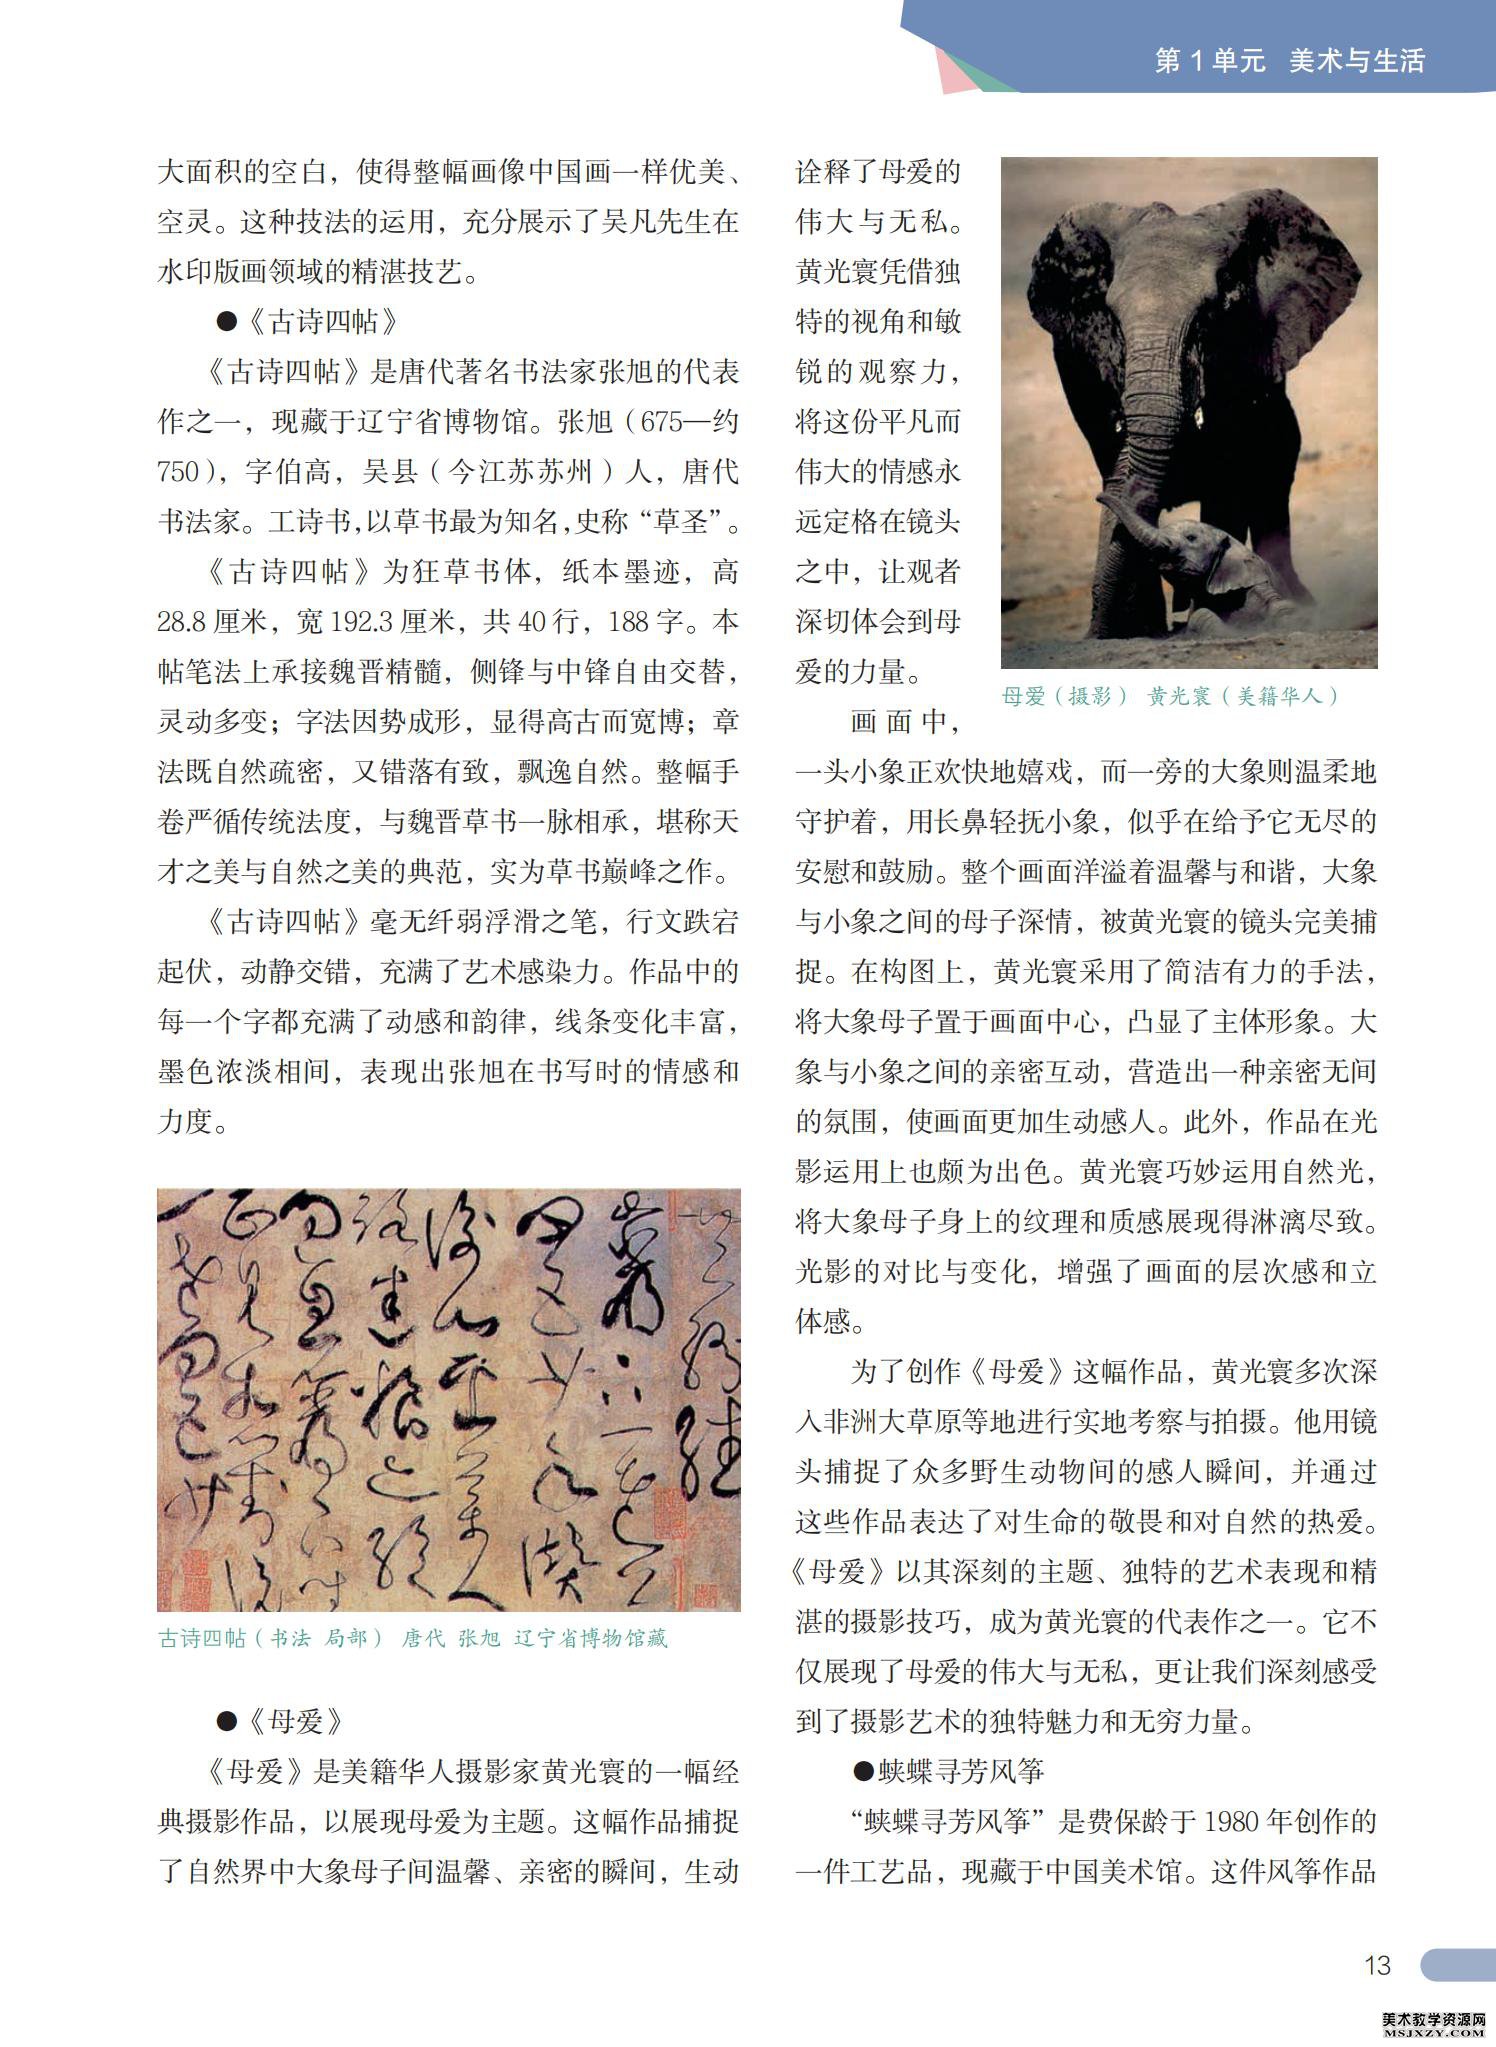 第 1 单元 美术与生活
大面积的空白，使得整幅画像中国画一样优美、
空灵。这种技法的运用，充分展示了吴凡先生在
水印版画领域的精湛技艺。
●《古诗四帖》
《古诗四帖》是唐代著名书法家张旭的代表
作之一，现藏于辽宁省博物馆。张旭（675—约
750），字伯高，吴县（今江苏苏州）人，唐代
书法家。工诗书，以草书最为知名，史称“草圣”。
《古诗四帖》为狂草书体，纸本墨迹，高
28.8 厘米，宽 192.3 厘米，共 40 行，188 字。本
帖笔法上承接魏晋精髓，侧锋与中锋自由交替，
灵动多变；字法因势成形，显得高古而宽博；章
法既自然疏密，又错落有致，飘逸自然。整幅手
卷严循传统法度，与魏晋草书一脉相承，堪称天
才之美与自然之美的典范，实为草书巅峰之作。
《古诗四帖》毫无纤弱浮滑之笔，行文跌宕
起伏，动静交错，充满了艺术感染力。作品中的
每一个字都充满了动感和韵律，线条变化丰富，
墨色浓淡相间，表现出张旭在书写时的情感和
力度。
古诗四帖（书法 局部） 唐代 张旭 辽宁省博物馆藏
●《母爱》
《母爱》是美籍华人摄影家黄光寰的一幅经
典摄影作品，以展现母爱为主题。这幅作品捕捉
了自然界中大象母子间温馨、亲密的瞬间，生动
诠释了母爱的
伟大与无私。
黄光寰凭借独
特的视角和敏
锐的观察力，
将这份平凡而
伟大的情感永
远定格在镜头
之中，让观者
深切体会到母
爱的力量。
母爱（摄影） 黄光寰（美籍华人）
画面中，
一头小象正欢快地嬉戏，而一旁的大象则温柔地
守护着，用长鼻轻抚小象，似乎在给予它无尽的
安慰和鼓励。整个画面洋溢着温馨与和谐，大象
与小象之间的母子深情，被黄光寰的镜头完美捕
捉。在构图上，黄光寰采用了简洁有力的手法，
将大象母子置于画面中心，凸显了主体形象。大
象与小象之间的亲密互动，营造出一种亲密无间
的氛围，使画面更加生动感人。此外，作品在光
影运用上也颇为出色。黄光寰巧妙运用自然光，
将大象母子身上的纹理和质感展现得淋漓尽致。
光影的对比与变化，增强了画面的层次感和立
体感。
为了创作《母爱》这幅作品，黄光寰多次深
入非洲大草原等地进行实地考察与拍摄。他用镜
头捕捉了众多野生动物间的感人瞬间，并通过
这些作品表达了对生命的敬畏和对自然的热爱。
《母爱》以其深刻的主题、独特的艺术表现和精
湛的摄影技巧，成为黄光寰的代表作之一。它不
仅展现了母爱的伟大与无私，更让我们深刻感受
到了摄影艺术的独特魅力和无穷力量。
●蛱蝶寻芳风筝
“蛱蝶寻芳风筝”是费保龄于 1980 年创作的
一件工艺品，现藏于中国美术馆。这件风筝作品
13
美术教学资源网
MSJXZY.COM